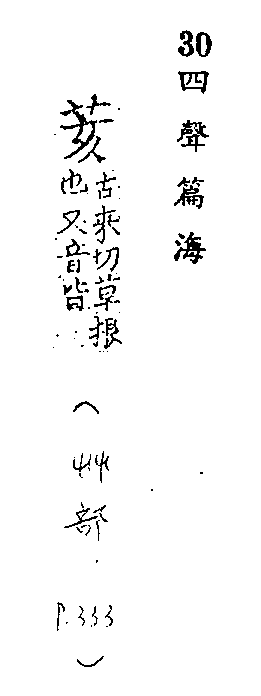 30 四聲篇海
荄 古來切草根
也又音皆
(艸部 P.333)